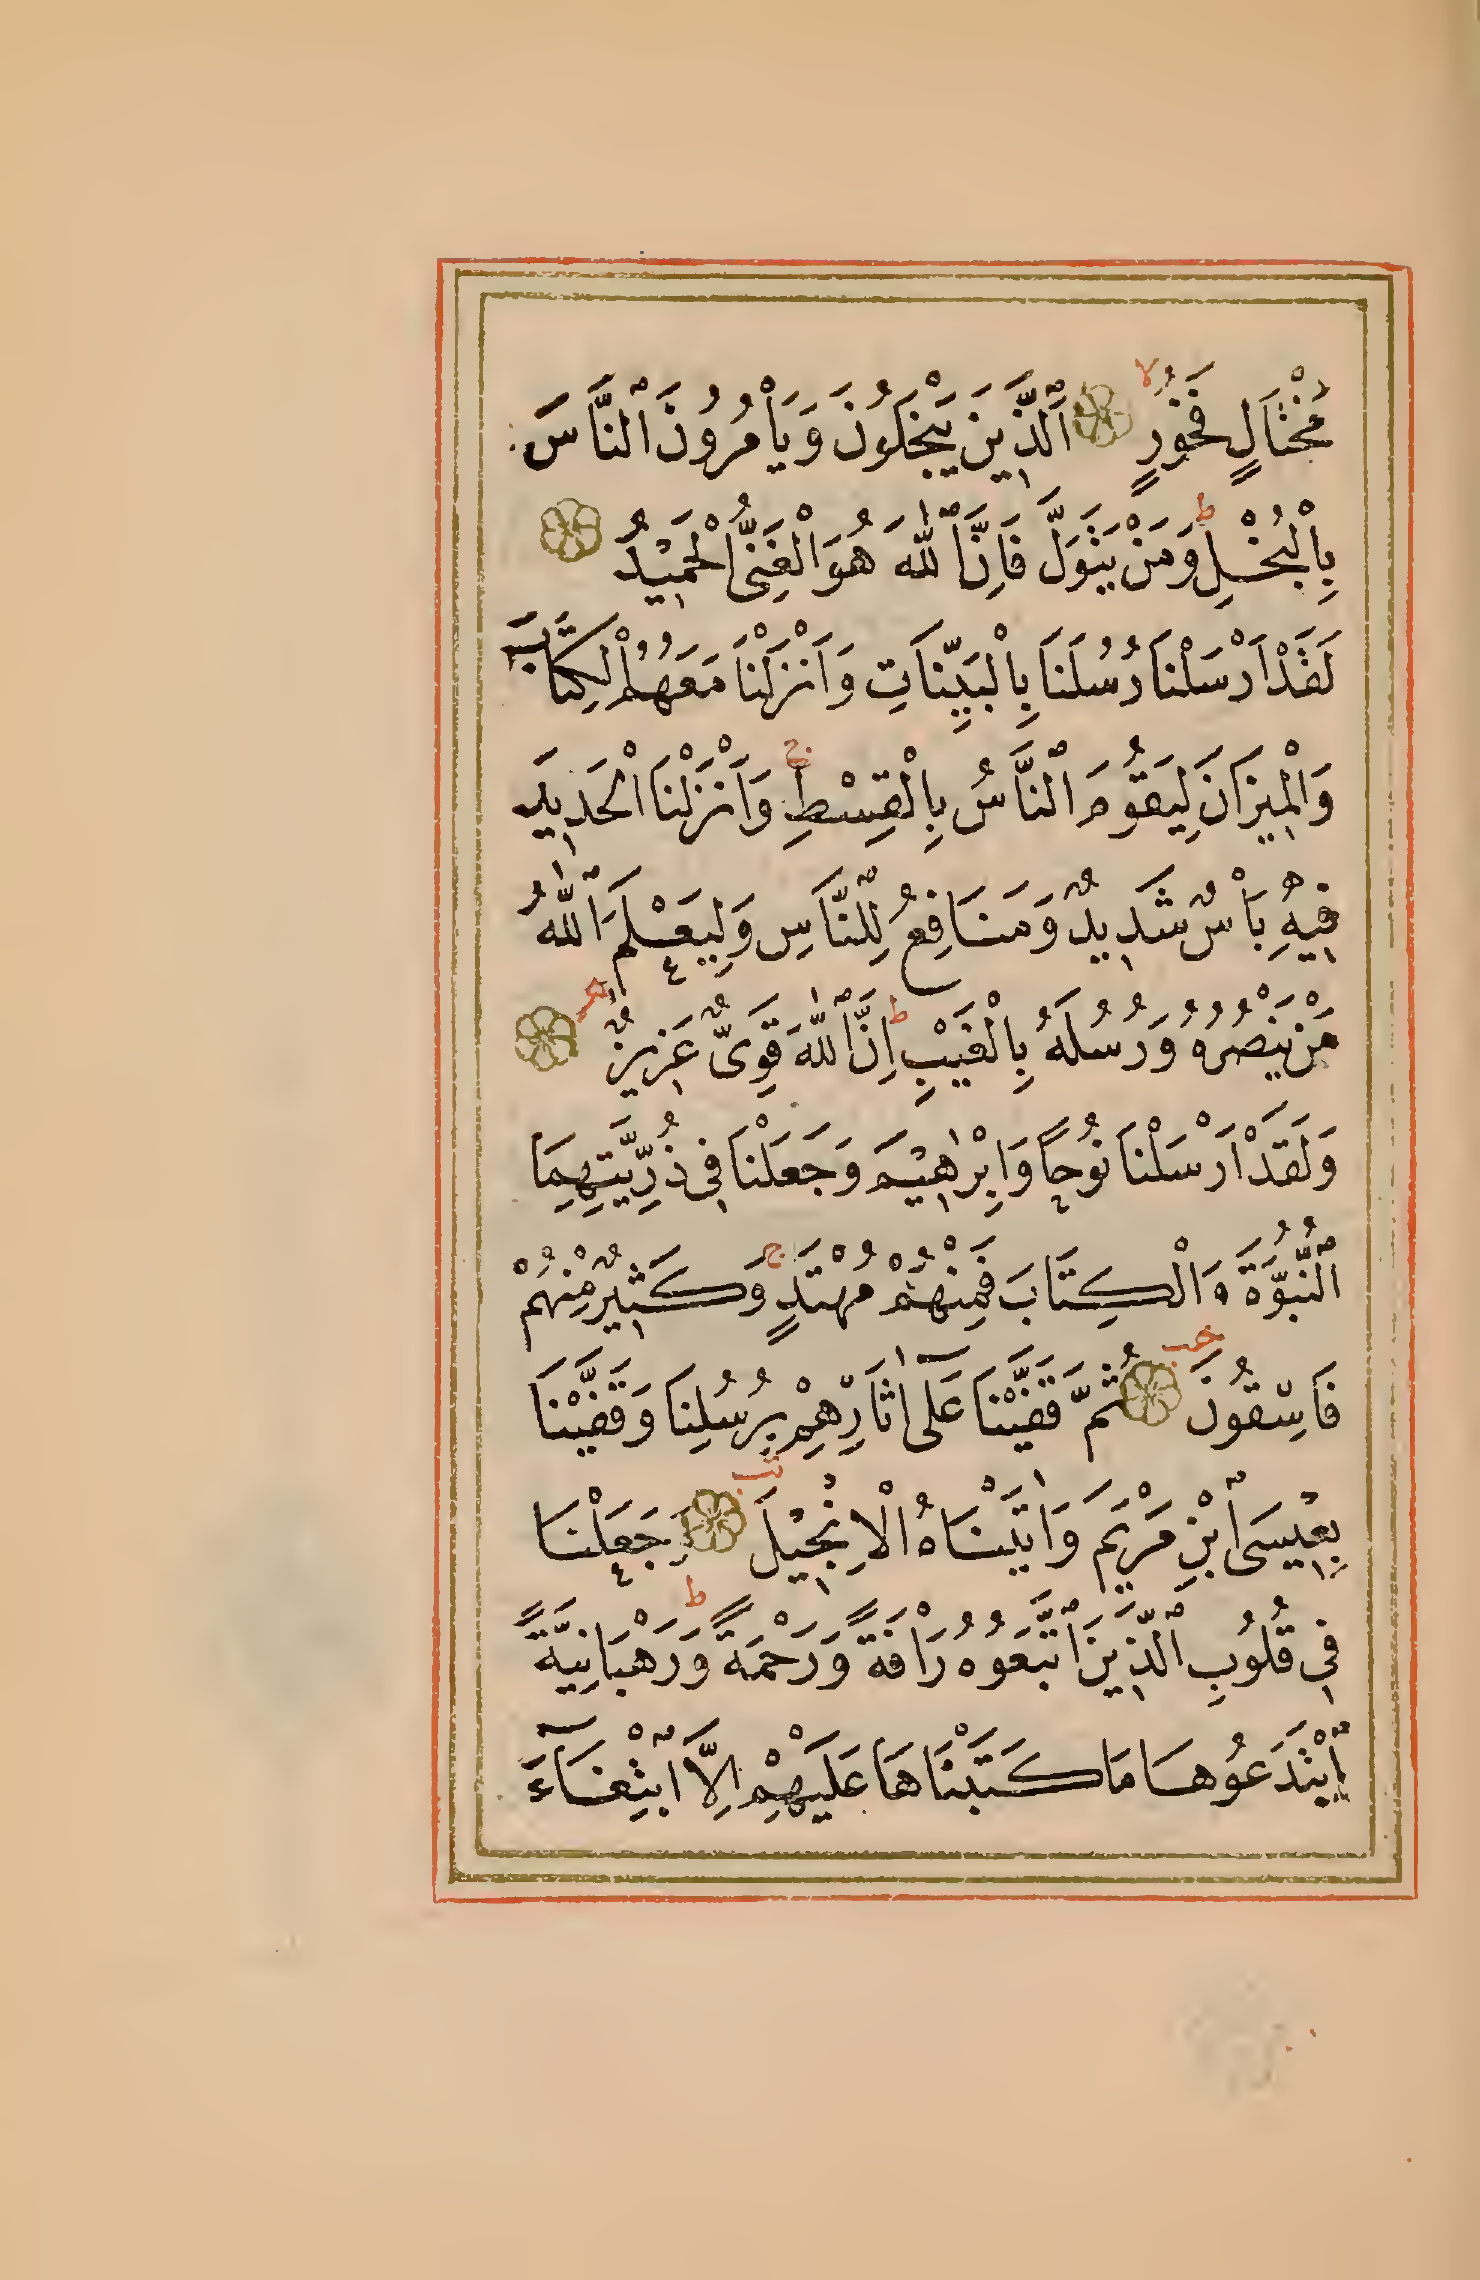 مُخْتَالٍ فَخُورٍ ۙ اَلَّذِينَ يَبْخَلُونَ وَيَاْمُرُونَ ٱلنَّاسَ
بِالْبُخْلِ ۜ وَمَنْ يَتَوَلَّ فَاِنَّ ٱللّٰهَ هُوَ الْغَنِىُّ الْحَمِيدُ
لَقَدْ اَرْسَلْنَا رُسُلَنَا بِالْبَيِّنَاتِ وَاَنْزَلْنَا مَعَهُمُ الْكِتَابَ
وَالْمِيزَانَ لِيَقُومَ ٱلنَّاسُ بِالْقِسْطِ ج وَاَنْزَلْنَا الْحَدِيدَ
فِيهِ بَاْسٌ شَدِيدٌ وَمَنَافِعُ لِلنَّاسِ وَلِيَعْلَمَ ٱللّٰهُ
مَنْ يَنْصُرُهُ وَرُسُلَهُ بِالْغَيْبِ ط اِنَّ ٱللّٰهَ قَوِىٌّ عَزِيزٌ
وَلَقَدْ اَرْسَلْنَا نُوحاً وَاِبْرٰهِيمَ وَجَعَلْنَا فِي ذُرِّيَّتِهِمَا
ٱلنُّبُوَّةَ وَالْكِتَابَ فَمِنْهُمْ مُهْتَدٍ ج وَكَثِيرٌ مِنْهُمْ
فَاسِقُونَ خب ثُمَّ قَفَّيْنَا عَلَىٓ اٰثَارِهِمْ بِرُسُلِنَا وَقَفَّيْنَا
بِعِيسَى ٱبْنِ مَرْيَمَ وَاٰتَيْنَاهُ الْاِنْجِيلَ تب وَجَعَلْنَا
فِي قُلُوبِ ٱلَّذِينَ ٱتَّبَعُوهُ رَاْفَةً وَرَحْمَةً ط وَرَهْبَانِيَّةً
ٱبْتَدَعُوهَا مَا كَتَبْنَاهَا عَلَيْهِمْ اِلَّا ٱبْتِغَآءَ